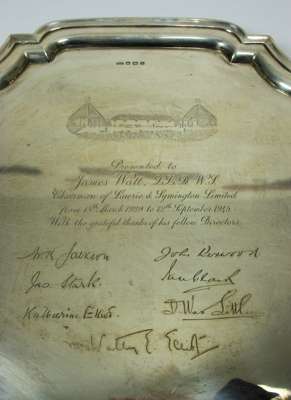 Presented to
James Watt, LL.B. W.S.
Chairman of Lawrie & Symington Limited
from 18th March 1929 to 12th September 1945
With the grateful thanks of his fellow Directors.
John
Jas Stark
Katharine Elliot
Walter E. Elliot